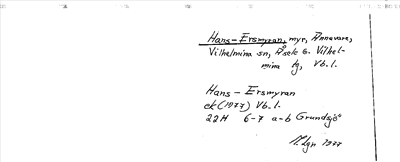 Hans-Ersmyran, myr, Annavare,
Vilhelmina sn, Åsele s. Vilhel-
mina tg, Vb.l.
Hans - Ersmyran
ek (1977) Vb.l.
22H 6-7 a-b Grundsjö
1977